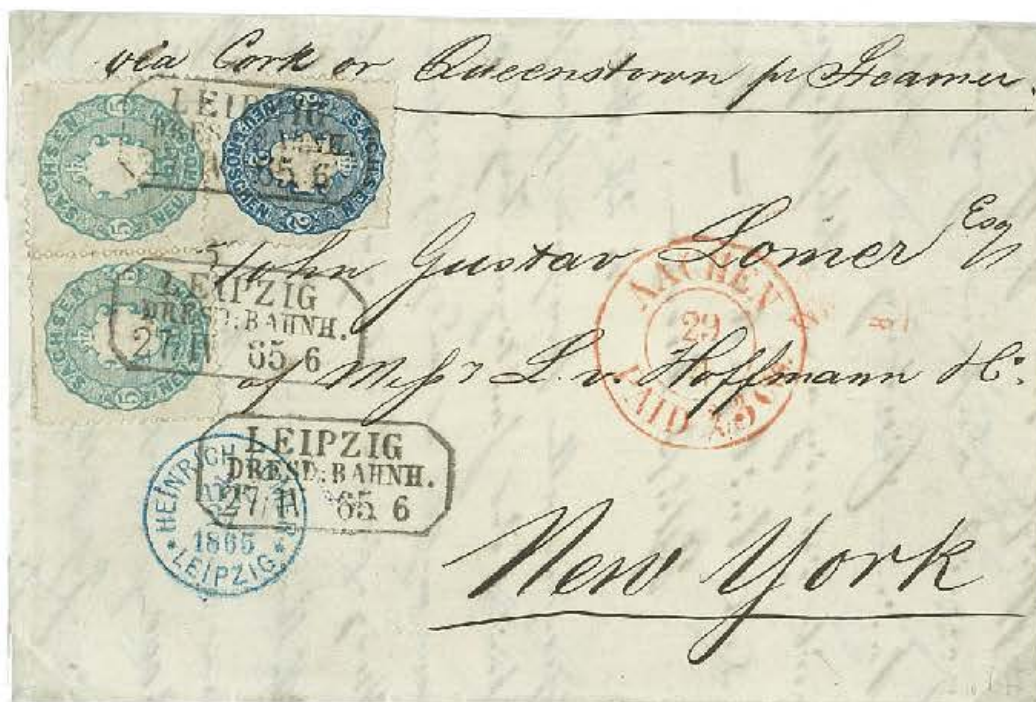 via Cork or Queenstown pr Steamer.
LEIPZIG
DRESD: BAHNH.
65 6
SACHSEN 5 NEU-GROSCHEN 5
SACHSEN 2 NEUGROSCHEN 2
John Gustav Lomer Esq
AACHEN
29
PAID
LEIPZIG
DRESD: BAHNH.
27 IV 65 6
SACHSEN 5 NEU
of Messrs L. v. Hoffmann & Co.
LEIPZIG
DRESD: BAHNH.
27 IV 65 6
HEINRICH
1865
* LEIPZIG *
New York